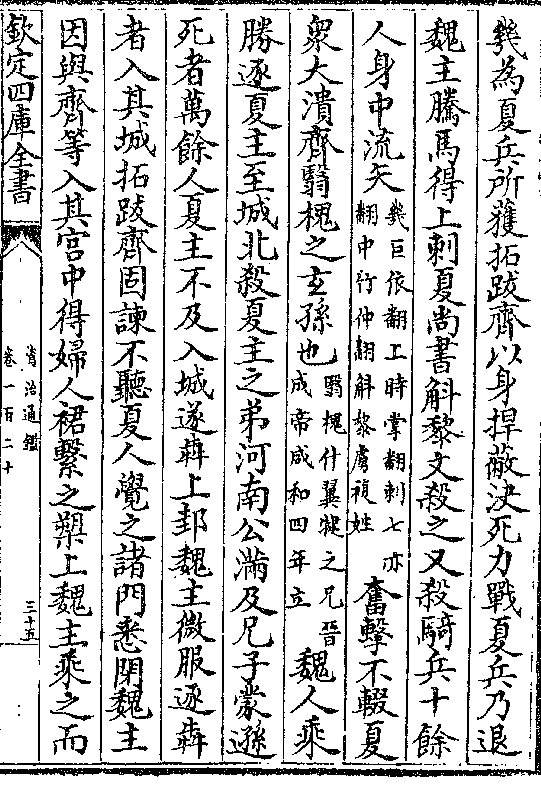 幾為夏兵所獲拓跋齊以身捍蔽決死力戰夏兵乃退
魏主騰馬得上刺夏尚書斛黎文殺之又殺騎兵十餘
人身中流矢幾巨依翻上時掌翻刺七亦翻中行仲翻斛黎虜複姓奮擊不輟夏
衆大潰齊翳槐之玄孫也翳槐什翼犍之兄晉成帝咸和四年立魏人乘
勝逐夏主至城北殺夏主之弟河南公滿及兄子蒙遜
死者萬餘人夏主不及入城遂犇上邽魏主微服逐犇
者入其城拓跋齊固諫不聽夏人覺之諸門悉閉魏主
因與齊等入其宮中得婦人裙繫之槊上魏主乘之而
欽定四庫全書
資治通鑑
卷一百二十
三十五